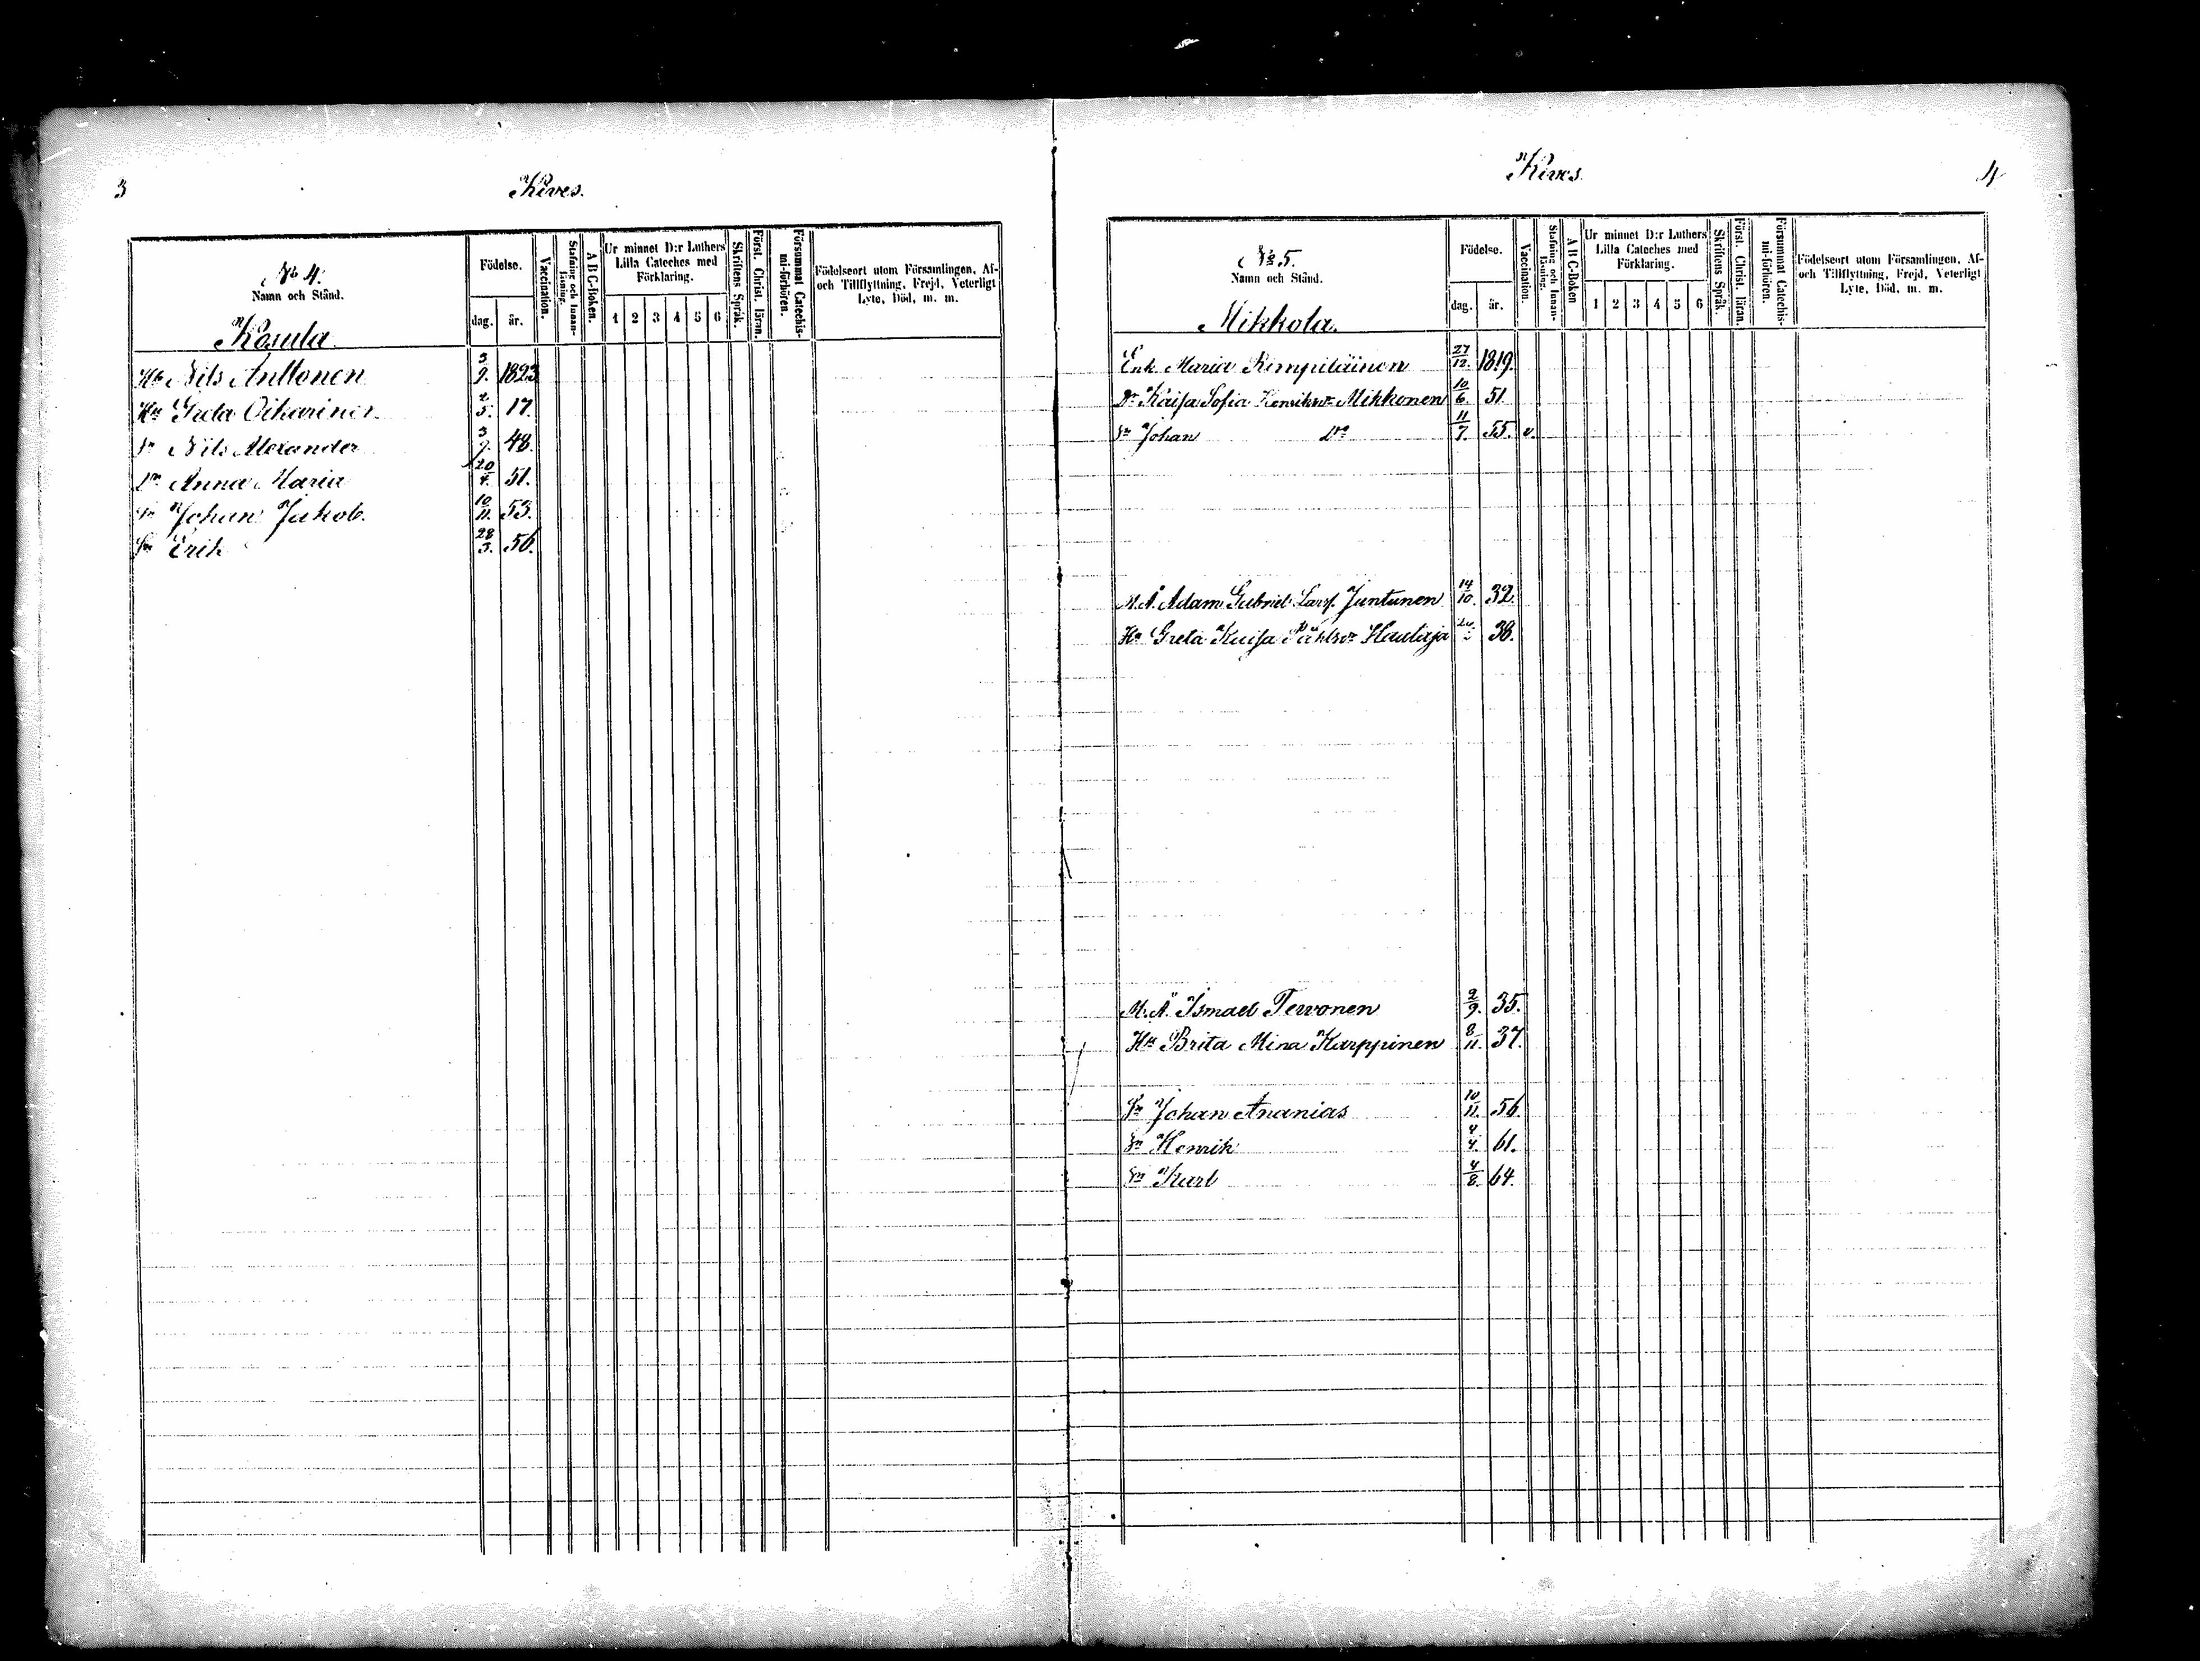 3
Kives.
No 4.
Namn och Stånd.
Födelse.
dag.
år.
Vaccination.
Stafning och Innan-läsning.
A B C-Boken.
Ur minnet D:r Luthers Lilla Cateches med Förklaring.
1 2 3 4 5 6
Skriftens Språk.
Först. Christ. läran.
Försummat Catechis-mi-förhören.
Födelseort utom Församlingen, Af- och Tillflyttning, Frejd, Veterligt Lyte, Död, m. m.
Kosula.
Hb Nils Anttonen 3/9. 1823
Hu Greta Oikarinen 2/5. 17.
Sn Nils Alexander 3/9. 48.
Dr Anna Maria 20/4. 51.
Sn Johan Jakob. 10/11. 53.
Sn Erik 28/3. 56.
Kives.
4
No 5.
Namn och Stånd.
Födelse.
dag.
år.
Vaccination.
Stafning och Innan-läsning.
A B C-Boken
Ur minnet D:r Luthers Lilla Cateches med Förklaring.
1 2 3 4 5 6
Skriftens Språk.
Först. Christ. läran.
Försummat Catechis-mi-förhören.
Födelseort utom Församlingen, Af- och Tillflyttning, Frejd, Veterligt Lyte, Död, m. m.
Mikkola.
Enk. Maria Kempiläinen 27/12. 1819.
Dr Kaisa Sofia Henriksdr Mikkonen 10/6. 51.
Sn Johan Do 11/7. 55. v.
M.Å. Adam Gabriel Larss. Juntunen 14/10. 32.
Hu Greta Kaisa Påhlsdr Hautaja 38.
M.Å. Ismael Tervonen 2/9. 35.
Hu Brita Mina Karppinen 8/11. 37.
Sn Johan Ananias 10/11. 56.
Sn Henrik 4/4. 61.
Sn Karl 4/8. 64.